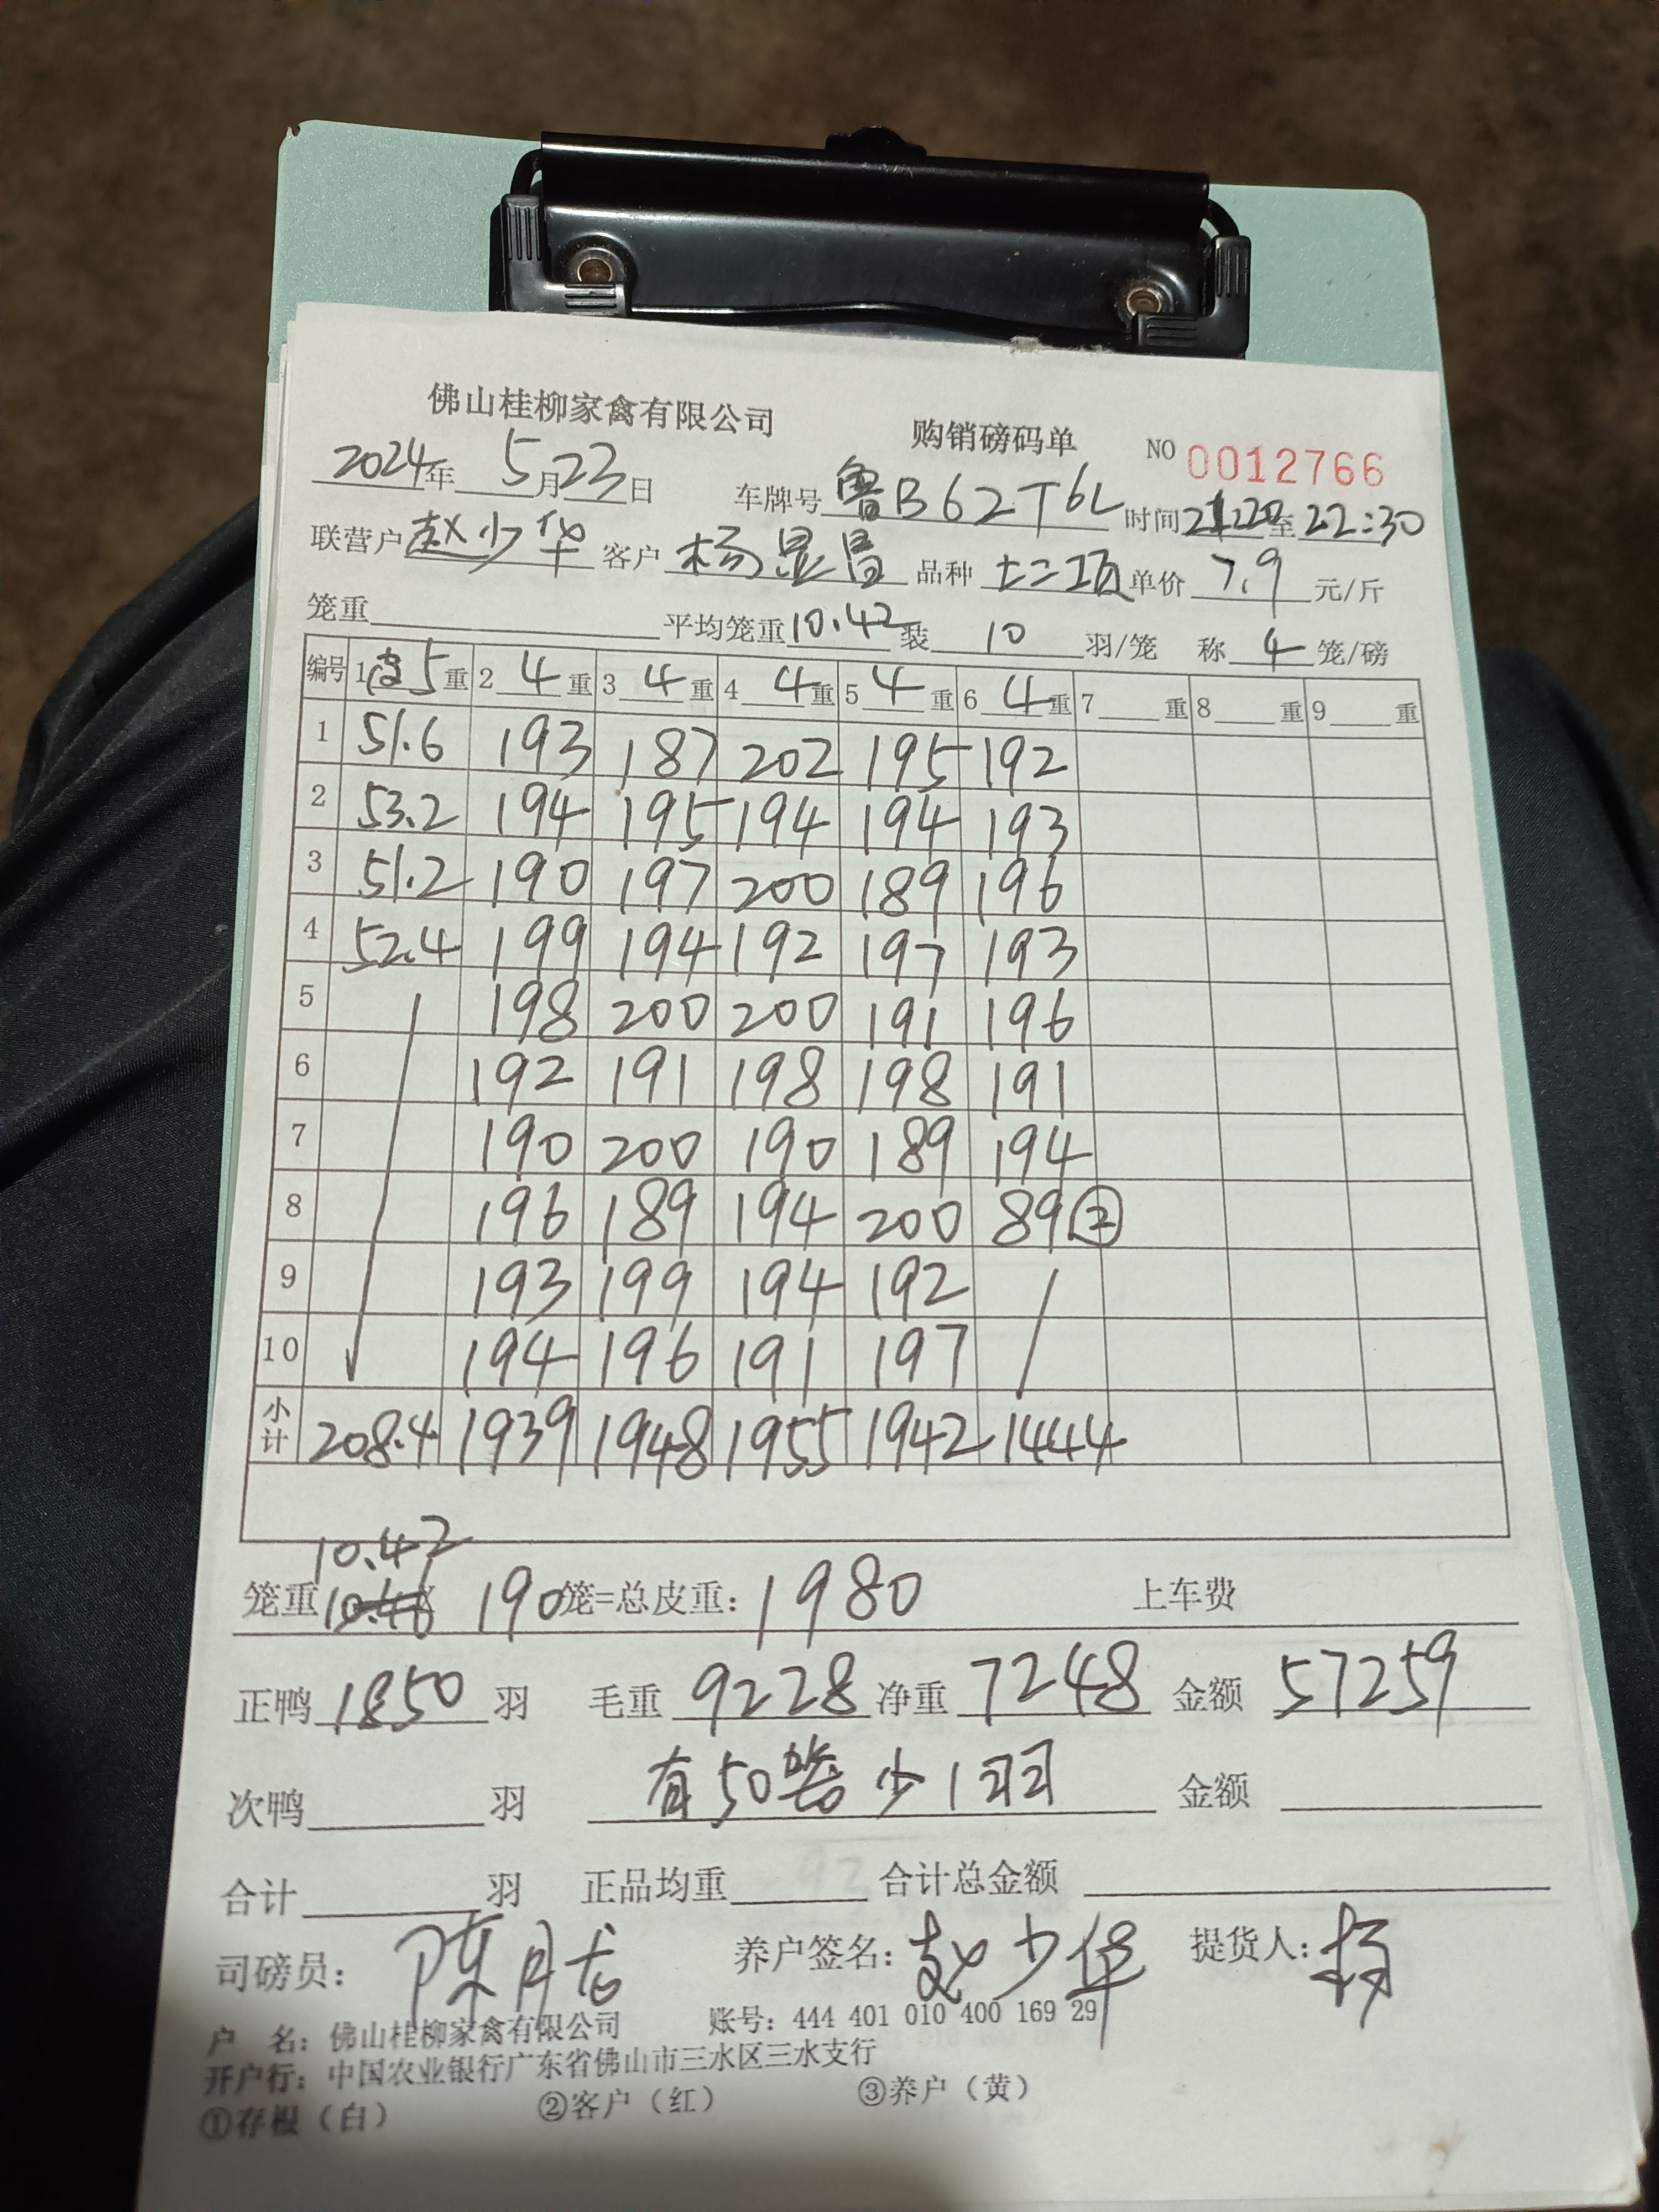 佛山桂柳家禽有限公司 购销磅码单 NO 0012766
2024年 5月23日 车牌号 鲁B62T6L 时间 21:20 至 22:30
联营户 赵少华 客户 杨显昌 品种 土二项 单价 7.9 元/斤
笼重 平均笼重 10.42 装 10 羽/笼 称 4 笼/磅
编号 1 皮5 重 2 4 重 3 4 重 4 4 重 5 4 重 6 4 重 7 重 8 重 9 重
1 51.6 193 187 202 195 192
2 53.2 194 195 194 194 193
3 51.2 190 197 200 189 196
4 52.4 199 194 192 197 193
5 198 200 200 191 196
6 192 191 198 198 191
7 190 200 190 189 194
8 196 189 194 200 89 ②
9 193 199 194 192
10 194 196 191 197
小计 208.4 1939 1948 1955 1942 1444
10.42
笼重 190笼=总皮重: 1980 上车费
正鸭 1850 羽 毛重 9228 净重 7248 金额 57259
次鸭 羽 有50 少1羽 金额
合计 羽 正品均重 合计总金额
司磅员: 陈月 养户签名: 赵少华 提货人: 杨
户 名: 佛山桂柳家禽有限公司 账号: 444 401 010 400 169 29
开户行: 中国农业银行广东省佛山市三水区三水支行
①存根（白） ②客户（红） ③养户（黄）